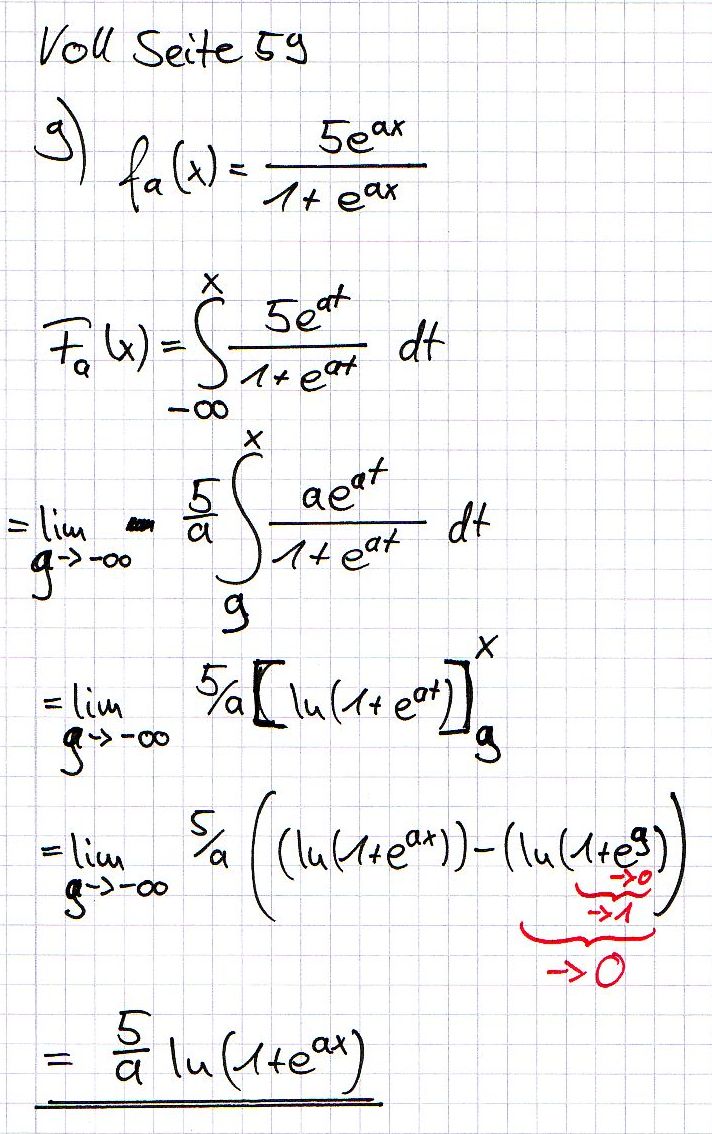 Voll Seite 59
g) fa(x) = 5e^ax / 1 + e^ax
Fa(x) = ∫_-∞^x 5e^at / 1 + e^at dt
= lim g→-∞ - 5/a ∫_g^x ae^at / 1 + e^at dt
= lim g→-∞ 5/a [ln(1 + e^at)]_g^x
= lim g→-∞ 5/a ((ln(1+e^ax)) - (ln(1+e^g))
→0
→1
→0
= 5/a ln(1+e^ax)